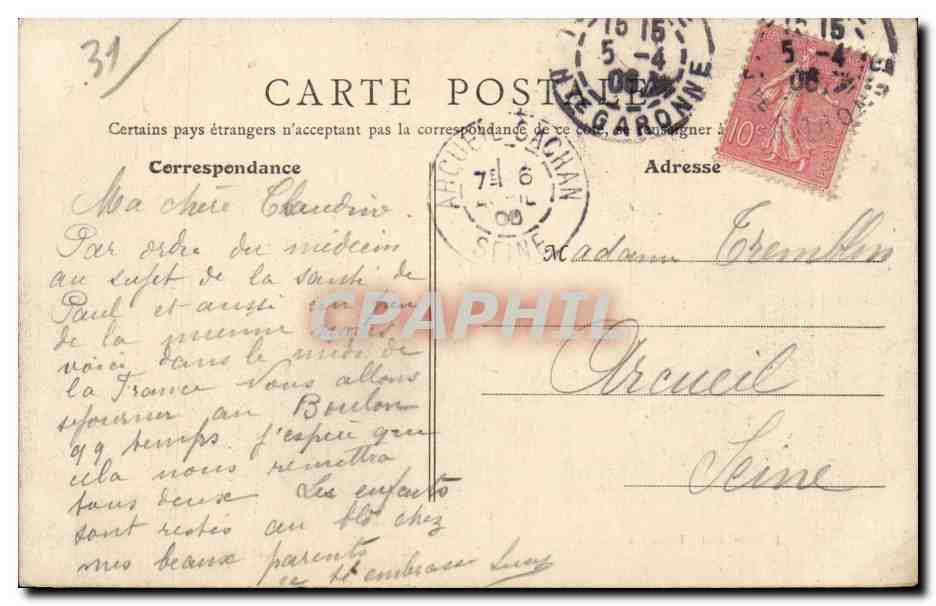 31
CARTE POSTALE
Certains pays étrangers n'acceptant pas la correspondance de ce côté, se renseigner à
Correspondance
Adresse
15 15
5 -4
06
Hte GARONNE
15
5 -4
06
10c
POSTE
ARCUEIL-CACHAN
7E 6
06
SEINE
Ma chère Claudine.
Par ordre du médecin
au sujet de la santé de
Paul et aussi un peu
de la mienne nous
voici dans le midi de
la France Nous allons
séjourner au Boulou
qq temps j'espère que
cela nous remettra
tous deux Les enfants
sont restés au chez
mes beaux parents
je t'embrasse Lucy
Madame Tremblin
Arcueil
Seine
CPAPHIL